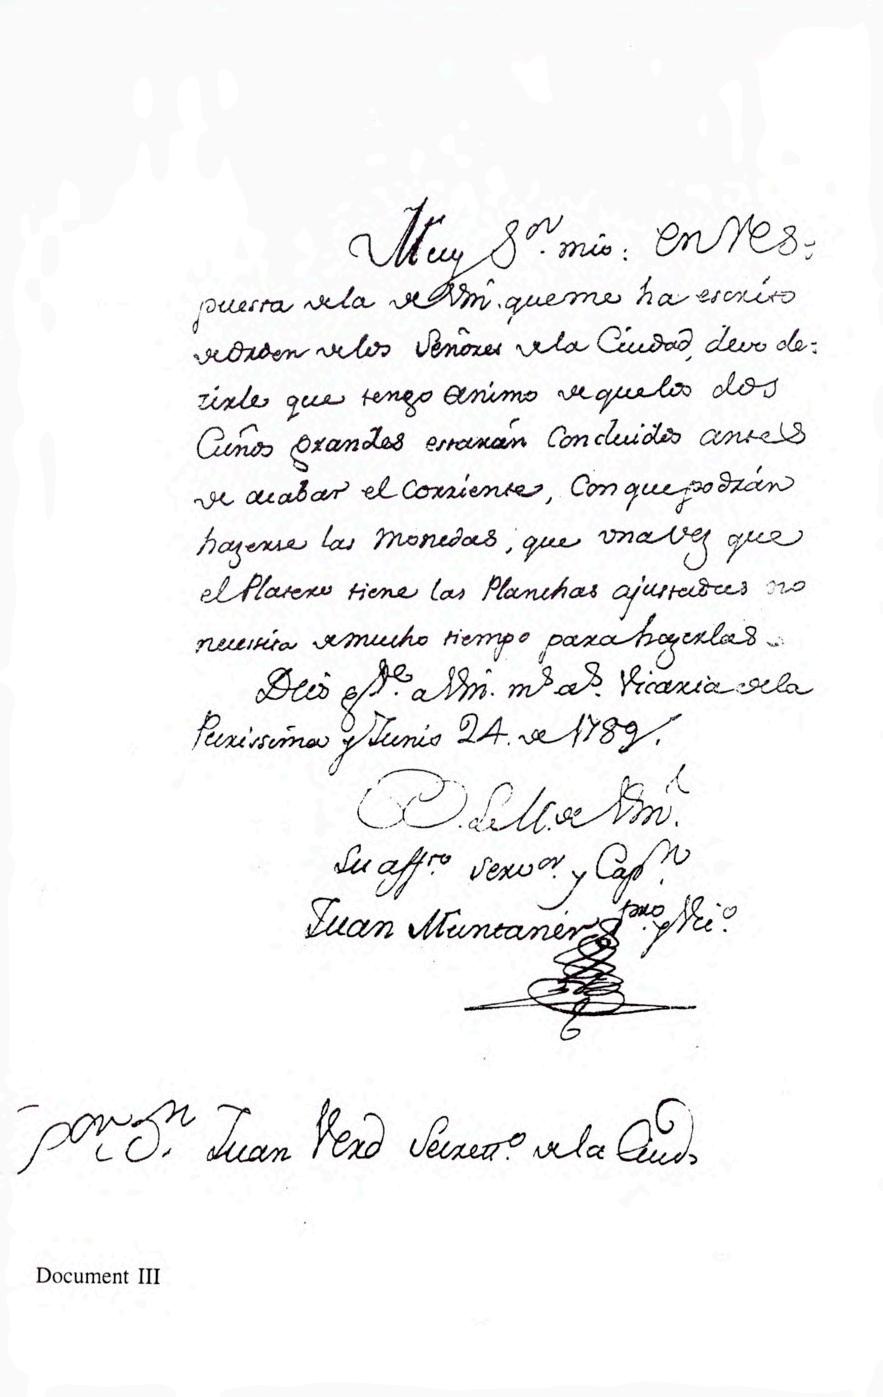 Muy S.or mio: En res-
puesta de la de Vm. que me ha escrito
de orden de los Señores de la Ciudad, devo de-
zirle que tengo animo de que los dos
Cuños grandes estarán Concluidos antes
de acabar el Corriente, Con que podrán
hazerse las Monedas, que una vez que
el Platero tiene las Planchas ajustadas no
necesita de mucho tiempo para hazerlas.
Dios g.de a Vm. m.s a.s Vicaria de la
Purissima y Junio 24. de 1789.
B. L. M. de Vm.
Su aff.to Serv.or y Cap.n
Juan Muntanér Pbro. y Vic.o
S.or D.n Juan Verd Secrett.o de la Ciud.
Document III